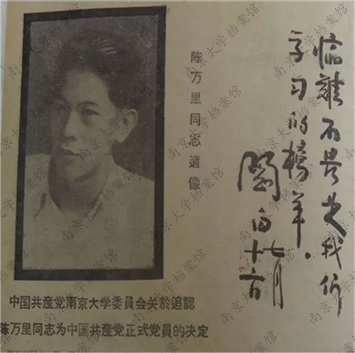 临難不畏是我们
学习的榜样。
七月
陈万里同志遺像
中国共産党南京大学委員会关於追認
陈万里同志为中国共産党正式党員的决定
南京大学档案馆